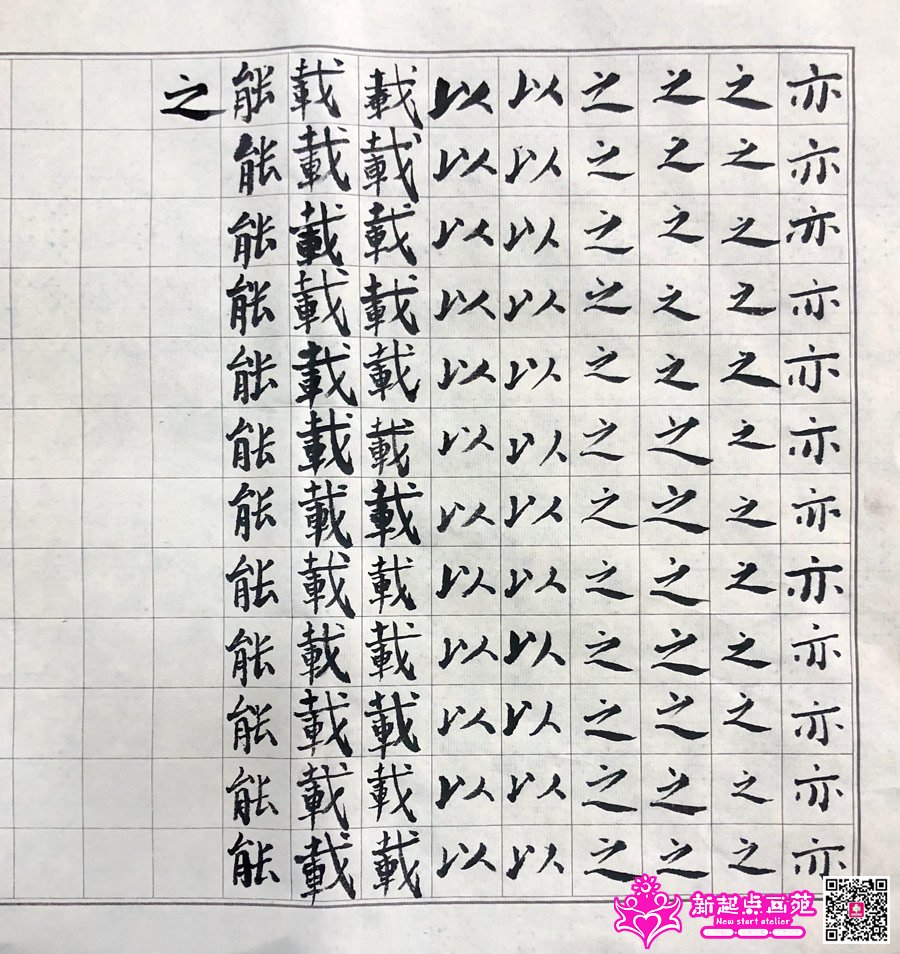 亦亦亦亦亦亦亦亦亦亦亦亦
之之之之之之之之之之之之
之之之之之之之之之之之之
之之之之之之之之之之之之
以以以以以以以以以以以以
以以以以以以以以以以以以
載載載載載載載載載載載載
載載載載載載載載載載載載
能能能能能能能能能能能能
之
新起点画苑
New start atelier